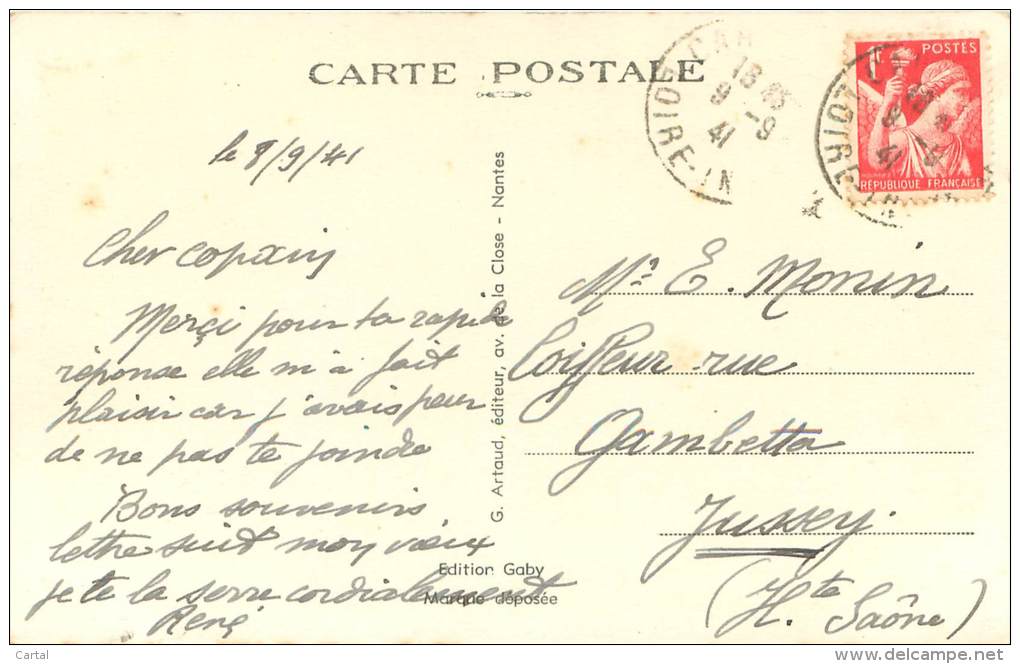 CARTE POSTALE
le 8/9/41
Cher copain
Merçi pour ta rapide
réponse elle m'a fait
plaisir car j'avais peur
de ne pas te joindre
Bons souvenirs
lettre suit mon vieux
je te la serre cordialement
René
G. Artaud, éditeur, av. de la Close - Nantes
Edition Gaby
Marque déposée
18 45
8 -9
41
LOIRE-IN
1F
POSTES
RÉPUBLIQUE FRANÇAISE
Mr E. Monin
Coiffeur rue
Gambetta
Jussey
(Hte Saône)
Cartal
delcampe.net